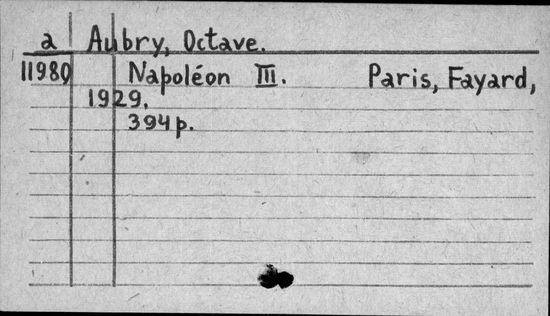 a Aubry, Octave.
11980 Napoléon III. Paris, Fayard,
1929.
394 p.